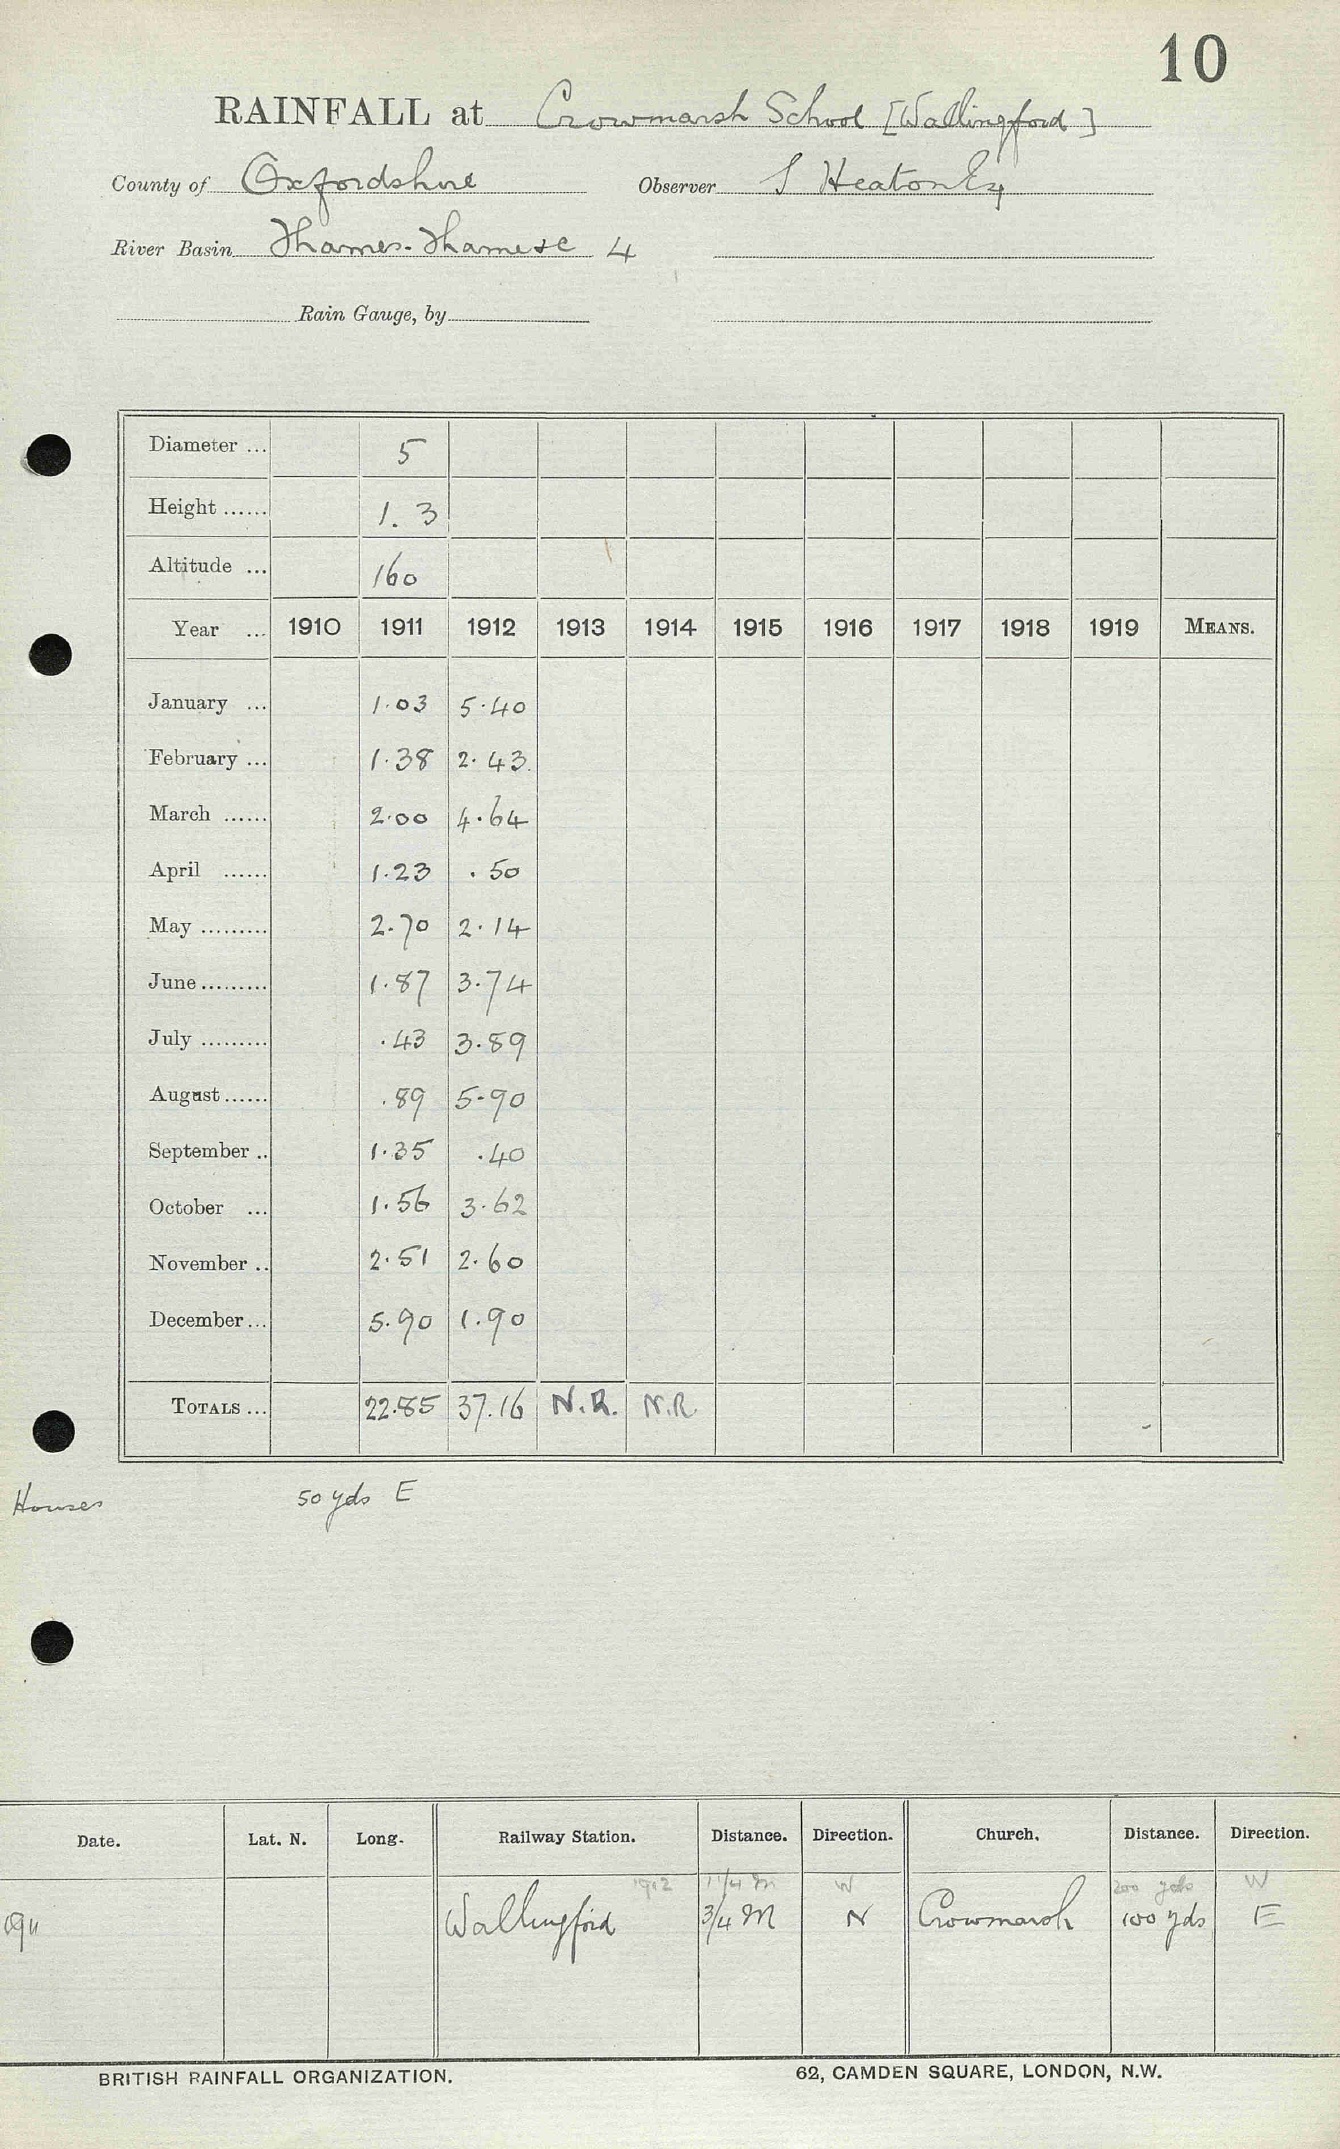 10
RAINFALL at Crowmarsh School [Wallingford]
County of Oxfordshire Observer S Heaton Esq
River Basin Thames. Thames & C 4
Rain Gauge, by
Diameter ... 5
Height ...... 1. 3
Altitude ... 160
Year ... 1910 1911 1912 1913 1914 1915 1916 1917 1918 1919 MEANS.
January ... 1.03 5.40
February ... 1.38 2.43
March ...... 2.00 4.64
April ...... 1.23 .50
May ......... 2.70 2.14
June ......... 1.87 3.74
July ......... .43 3.89
August ...... .89 5.90
September .. 1.35 .40
October ... 1.56 3.62
November .. 2.51 2.60
December ... 5.90 1.90
TOTALS ... 22.85 37.16 N.R. N.R.
Houses 50 yds E
Date. Lat. N. Long. Railway Station. Distance. Direction. Church. Distance. Direction.
1912 1 1/4 M W 200 yds W
1911 Wallingford 3/4 M N Crowmarsh 100 yds E
BRITISH RAINFALL ORGANIZATION. 62, CAMDEN SQUARE, LONDON, N.W.